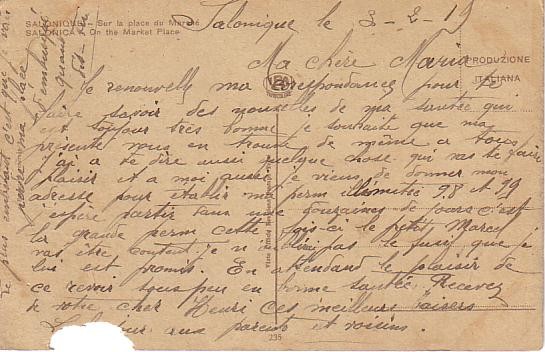 SALONIQUE - Sur la place du Marché
SALONICA - On the Market Place
Salonique le 3-2-19
PRODUZIONE
ITALIANA
Ma chère Maria
Je renouvelle ma correspondance pour te
faire savoir des nouvelles de ma santée qui
est toujour très bonne je souhaite que ma
présente vous en trouve de même a tous
j'ai a te dire aussi quelque chose qui vas te faire
plaisir et a moi aussi je viens de donner mon
adresse pour établir ma perm illimitée 98 et 99
espere partir dans une douzaines de jours c'est
la grande perm cette fois-ci le petit Marcel
vas être content je n'oubli pas le fusy que je
lui est promis. En attendant le plaisir de
ce revoir sous peu en bonne santée Recevez
de votre cher Henri ces meilleurs baisers
aux parents et voisins.
le plus embêtant c'est que j'avais
ma place
235